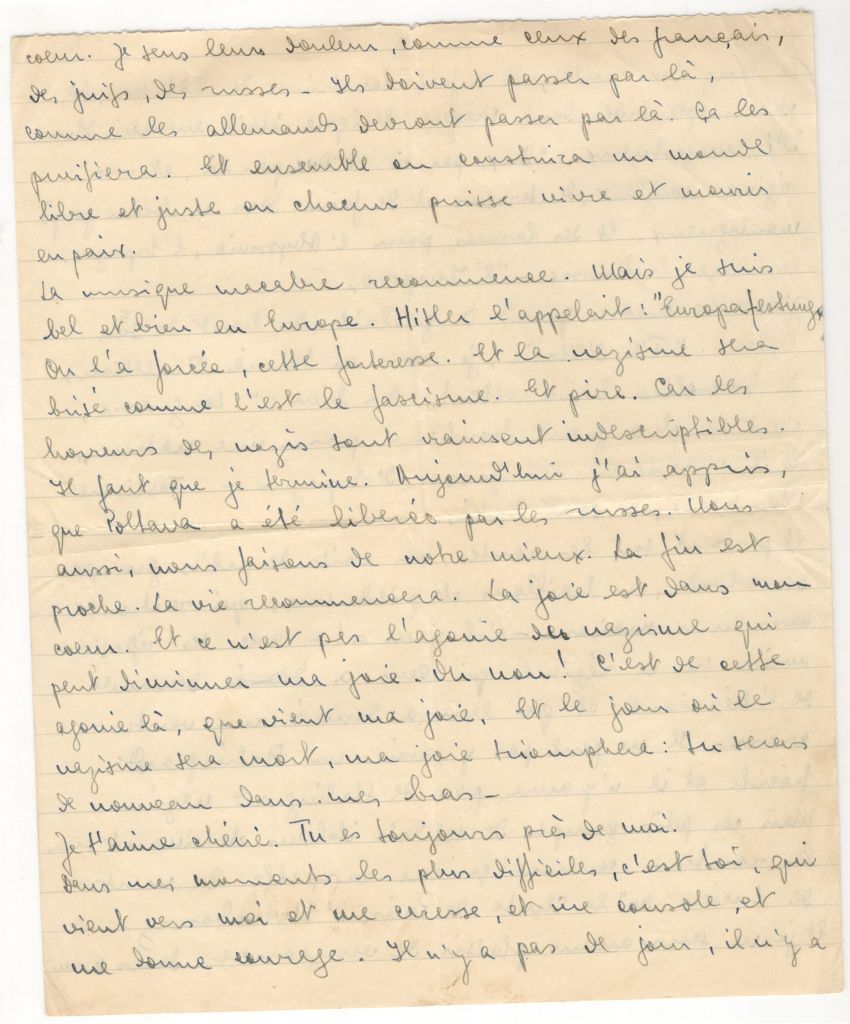 coeur. Je sens leurs douleur, comme ceux des français,
des juifs, des russes - Ils doivent passer par là,
comme les allemands devront passer par là. Ça les
purifiera. Et ensemble on construira un monde
libre et juste ou chacun puisse vivre et mourir
en paix.
La musique macabre recommence. Mais je suis
bel et bien en Europe. Hitler l'appelait : "Europafestung"
On l'a forcée, cette forteresse. Et la nazisme sera
brisé comme l'est le fascisme. Et pire. Car les
horreurs des nazis sont vraiment indescriptibles.
Il faut que je termine. Aujourd'hui j'ai appris,
que Poltava a été libérée par les russes. Nous
aussi, nous faisons de notre mieux. La fin est
proche. La vie recommencera. La joie est dans mon
coeur. Et ce n'est pas l'agonie du nazisme qui
peut diminuer ma joie. Oh non! C'est de cette
agonie là, que vient ma joie. Et le jour où le
nazisme sera mort, ma joie triomphera : tu seras
de nouveau dans mes bras -
Je t'aime chérie. Tu es toujours près de moi.
Dans mes moments les plus difficiles, c'est toi, qui
vient vers moi et me caresse, et me console, et
me donne courage. Il n'y a pas de jour, il n'y a